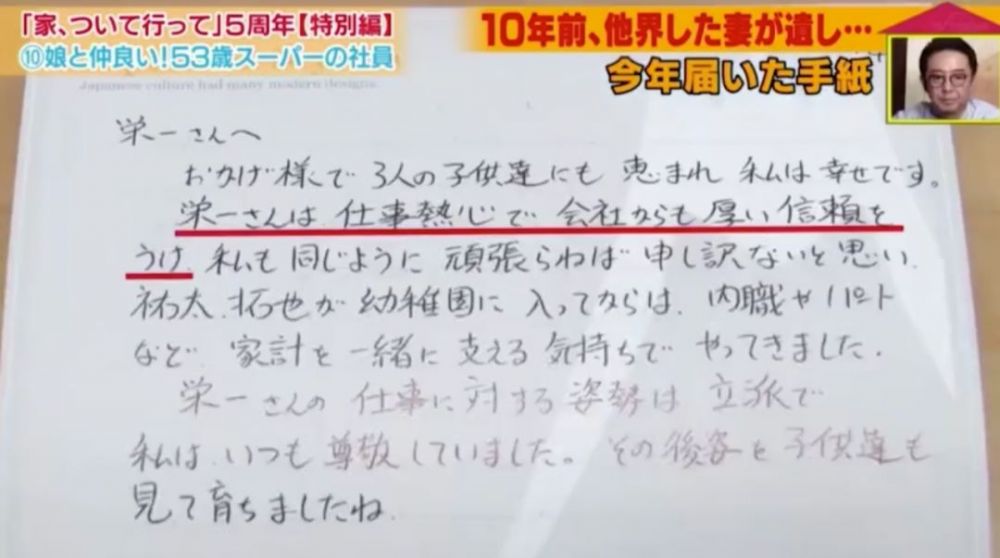 「家、ついて行って」5周年【特別編】
⑩娘と仲良い!53歳スーパーの社員
10年前、他界した妻が遺し…
今年届いた手紙
Japanese culture had many modern designs.
栄一さんへ
おかげ様で 3人の子供達にも 恵まれ 私は 幸せです。
栄一さんは 仕事熱心で 会社からも 厚い 信頼を
うけ 私も 同じように 頑張らねば 申し訳ないと 思い、
祐太、拓也が 幼稚園に 入ってからは、内職や パート
など、家計を 一緒に 支える 気持ちで やってきました。
栄一さんの 仕事に対する 姿勢は 立派で
私は、いつも 尊敬していました。その後姿を 子供達も
見て 育ちましたね